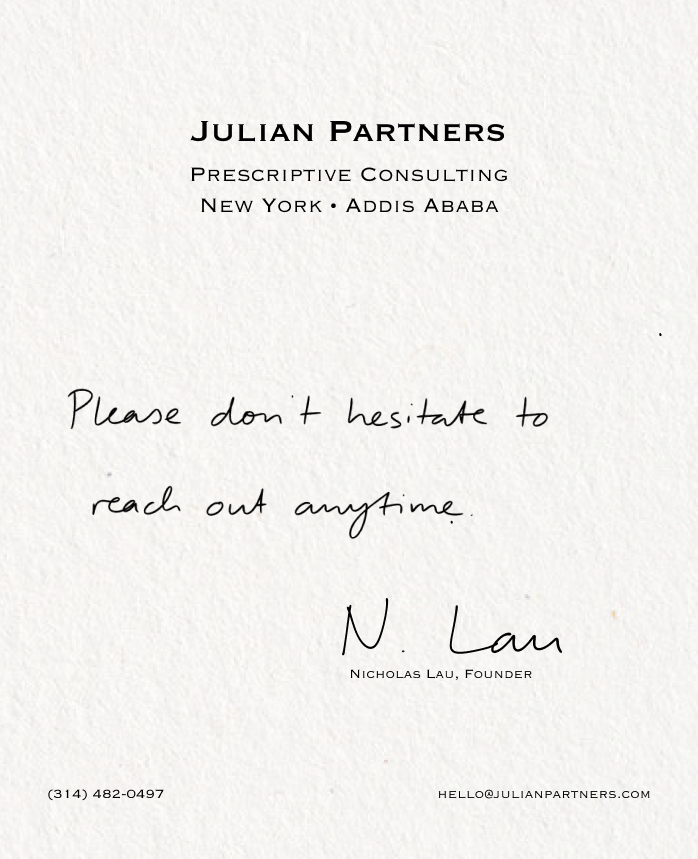 Julian Partners
Prescriptive Consulting
New York • Addis Ababa
Please don't hesitate to
reach out anytime.
N. Lau
Nicholas Lau, Founder
(314) 482-0497
hello@julianpartners.com